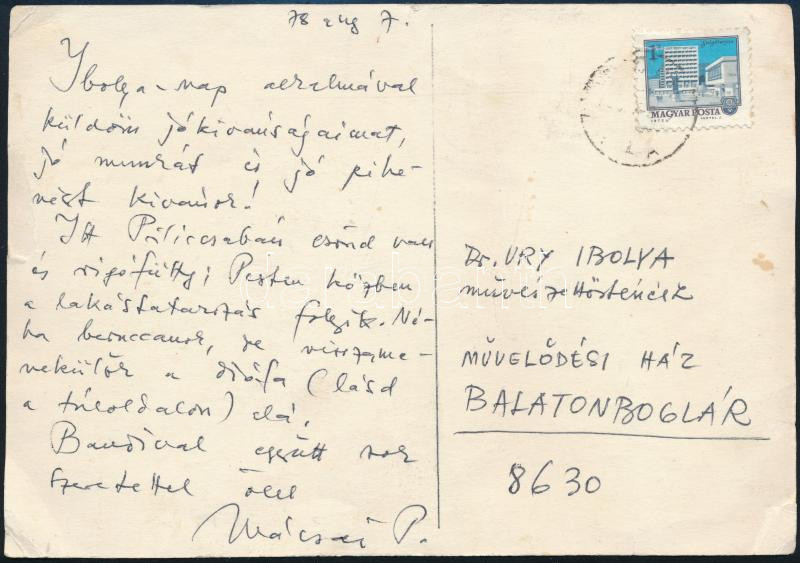 78 aug 7.
Ibolya-nap alkalmával
küldöm jókivánságaimat,
jó munkát és jó pihe-
nést kivánok!
Itt Piliscsabán csönd van
és rigófütty; Pesten közben
a lakástatarozás folyik. Né-
ha beruccanok, de visszame-
nekülök a diófa (lásd
a túloldalon) alá.
Bandival együtt sok
szeretettel ölel
Mácsai P.
1Ft
Salgótarján
MAGYAR POSTA
Dr. URY IBOLYA
művészettörténész
MŰVELŐDÉSI HÁZ
BALATONBOGLÁR
8630
darabanth